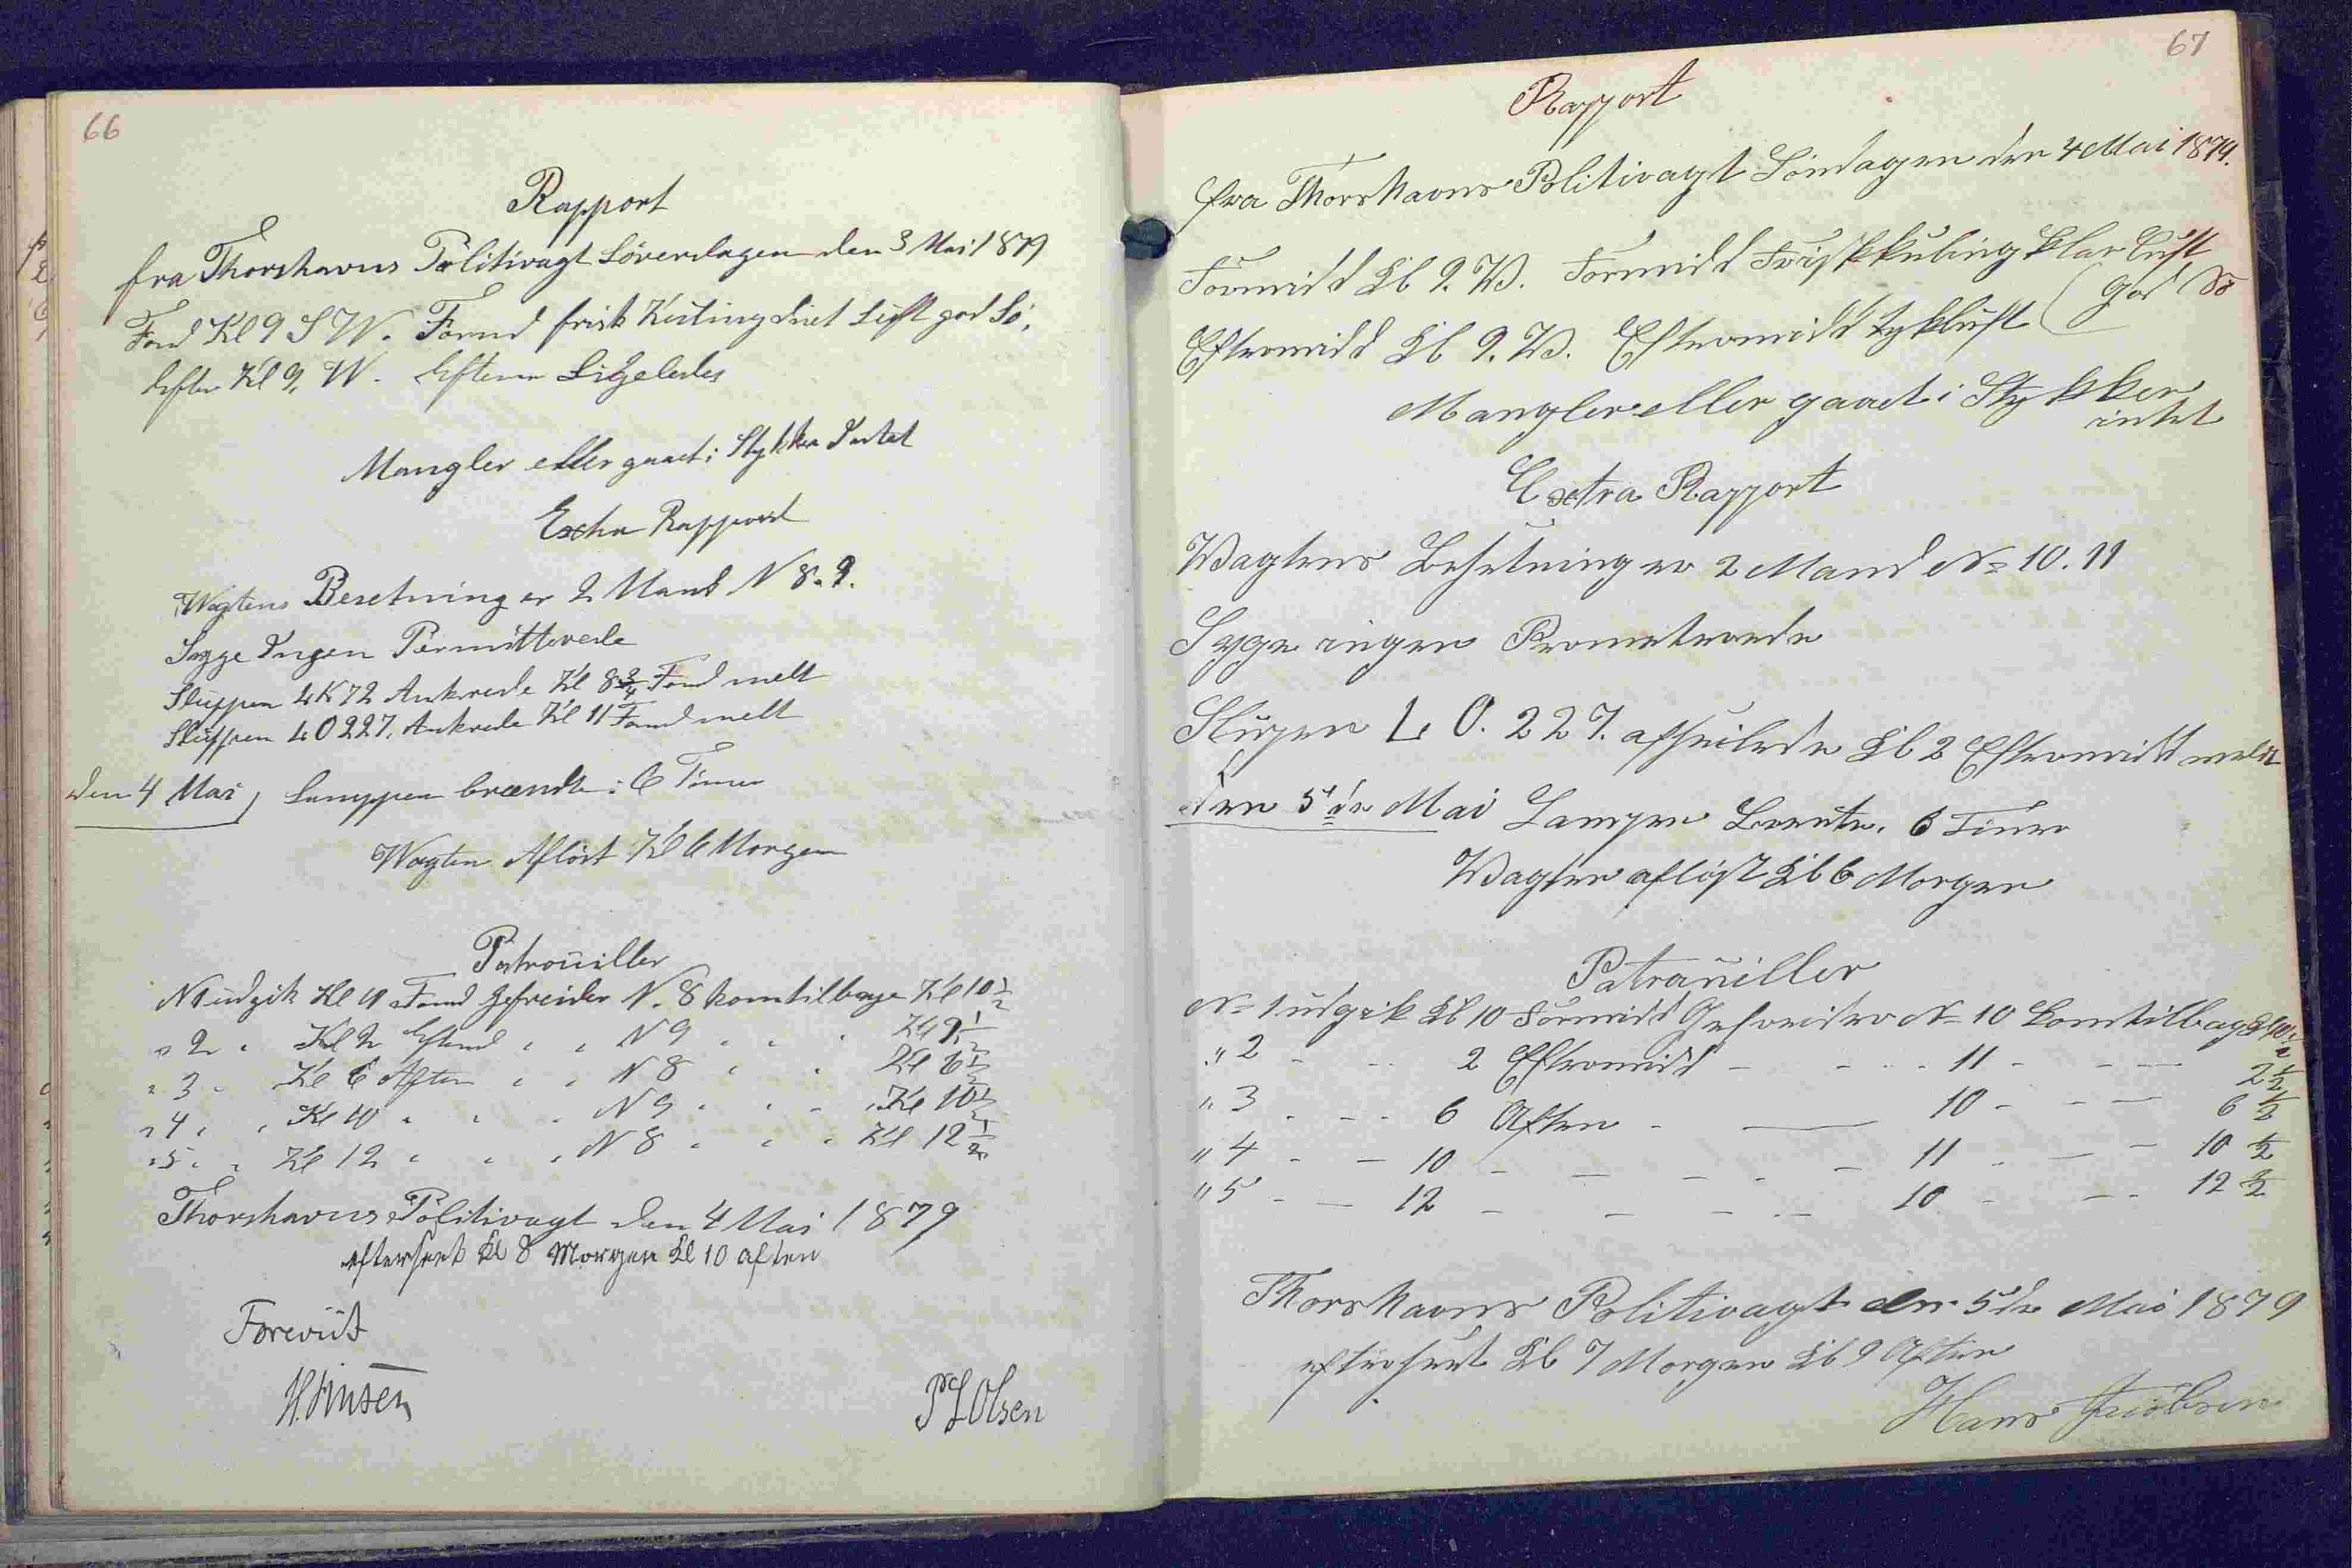 66
Rapport
fra Thorshavns Politivagt Löverdagen den 3 Mai 1879
Formd Kl 9 S W. Formd frisk Kuling diset Luft god Sö,
Efter Kl 9, W. Efterm Ligeledes
Mangler eller gaaet i Stykker Intet
Extra Rapport
Wagtens Besetning er 2 Mand N 8. 9.
Syge Ingen Permitterede
Sluppen LK 72 Ankrede Kl 8 3/4 Formd melt
Sluppen LO 227, Ankrede Kl 11 Formd melt
den 4 Mai, Lamppen brændte i 6 Timer
Wagten Aflöst Kl 6 Morgen
Patrouiller
N 1 udgik Kl 10 Formd Gefreider N. 8 kom tilbage Kl 10 1/2
" 2 " Kl 2 Eftmd " " N 9 " " " Kl 2 1/2
" 3 " Kl 6 Aften " " N 8 " " Kl 6 1/2
" 4 " " Kl 10 " " " N 9 " " " Kl 10 1/2
" 5 " " Kl 12 " " " N 8 " " " Kl 12 1/2
Thorshavns Politivagt den 4 Mai 1879
efterseet Kl 8 Morgen Kl 10 aften
Forevist
P Olsen
67
Rapport
fra Thorshavns Politivagt Söndagen den 4 Mai 1879.
Formidd Kl 9. W. Formidd Frisk kuling klar luft
Eftermidd Kl 9. W. Eftermidd tykluft ( god Sö
Mangler eller gaaet i Stykker
intet
Extra Rapport
Wagtens Besetning er 2 Mand No 10. 11
Syge ingen Prometerede
Slupen L O. 227. afseilede Kl 2 Eftermidd melt
den 5 de Mai Lampen Brente. 6 Timer
Wagten aflöst Kl 6 Morgen
Patrauiller
No 1 udgik Kl 10 Formidd Gefreider No 10 kom tilbage Kl 10 1/2
" 2 - - 2 Eftermidd - - - 11 - - - 2 1/2
" 3 - - - 6 Aften - — 10 - - - 6 1/2
" 4 - - 10 - - - - - 11 - - - 10 1/2
" 5 - - 12 - - - - - 10 - - - 12 1/2
Thorshavns Politivagt den 5 de Mai 1879
efterseet Kl 7 Morgen Kl 9 Aften
Hans Jacobsen